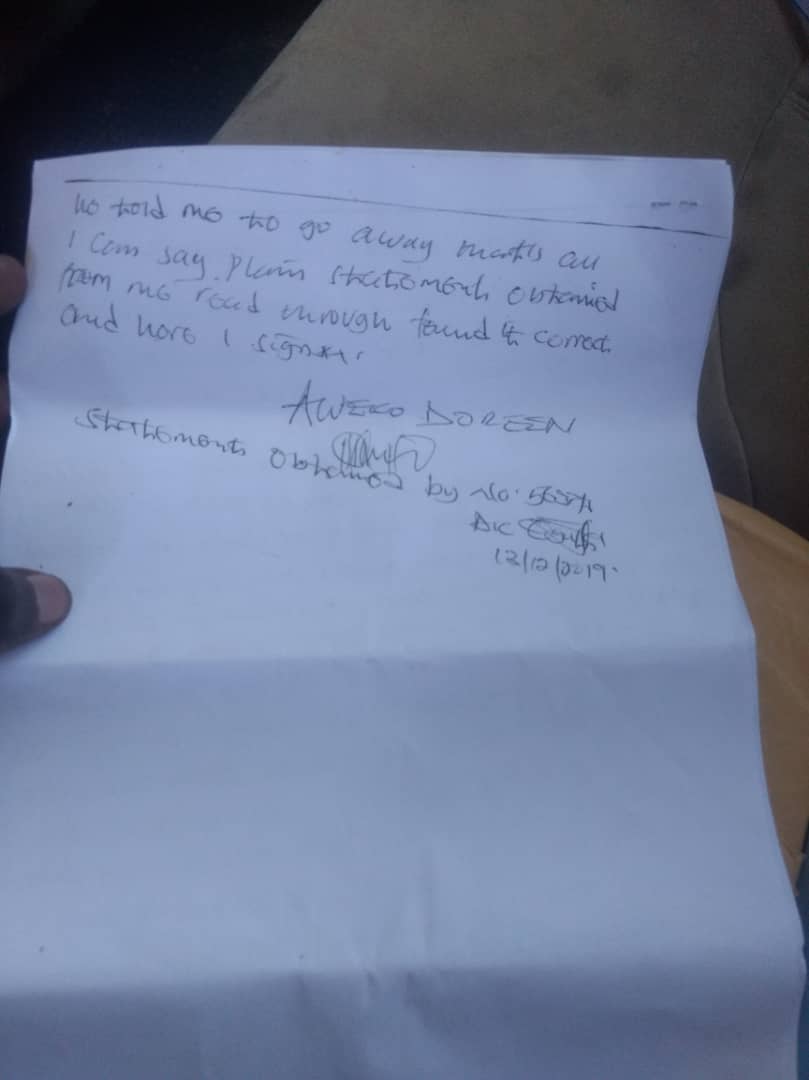 he told me to go away that's all
I can say. Plain statement obtained
from me read through found it correct
and here I sign.
AWEKO DOREEN
Statement obtained by No.
D/C
13/12/2019.